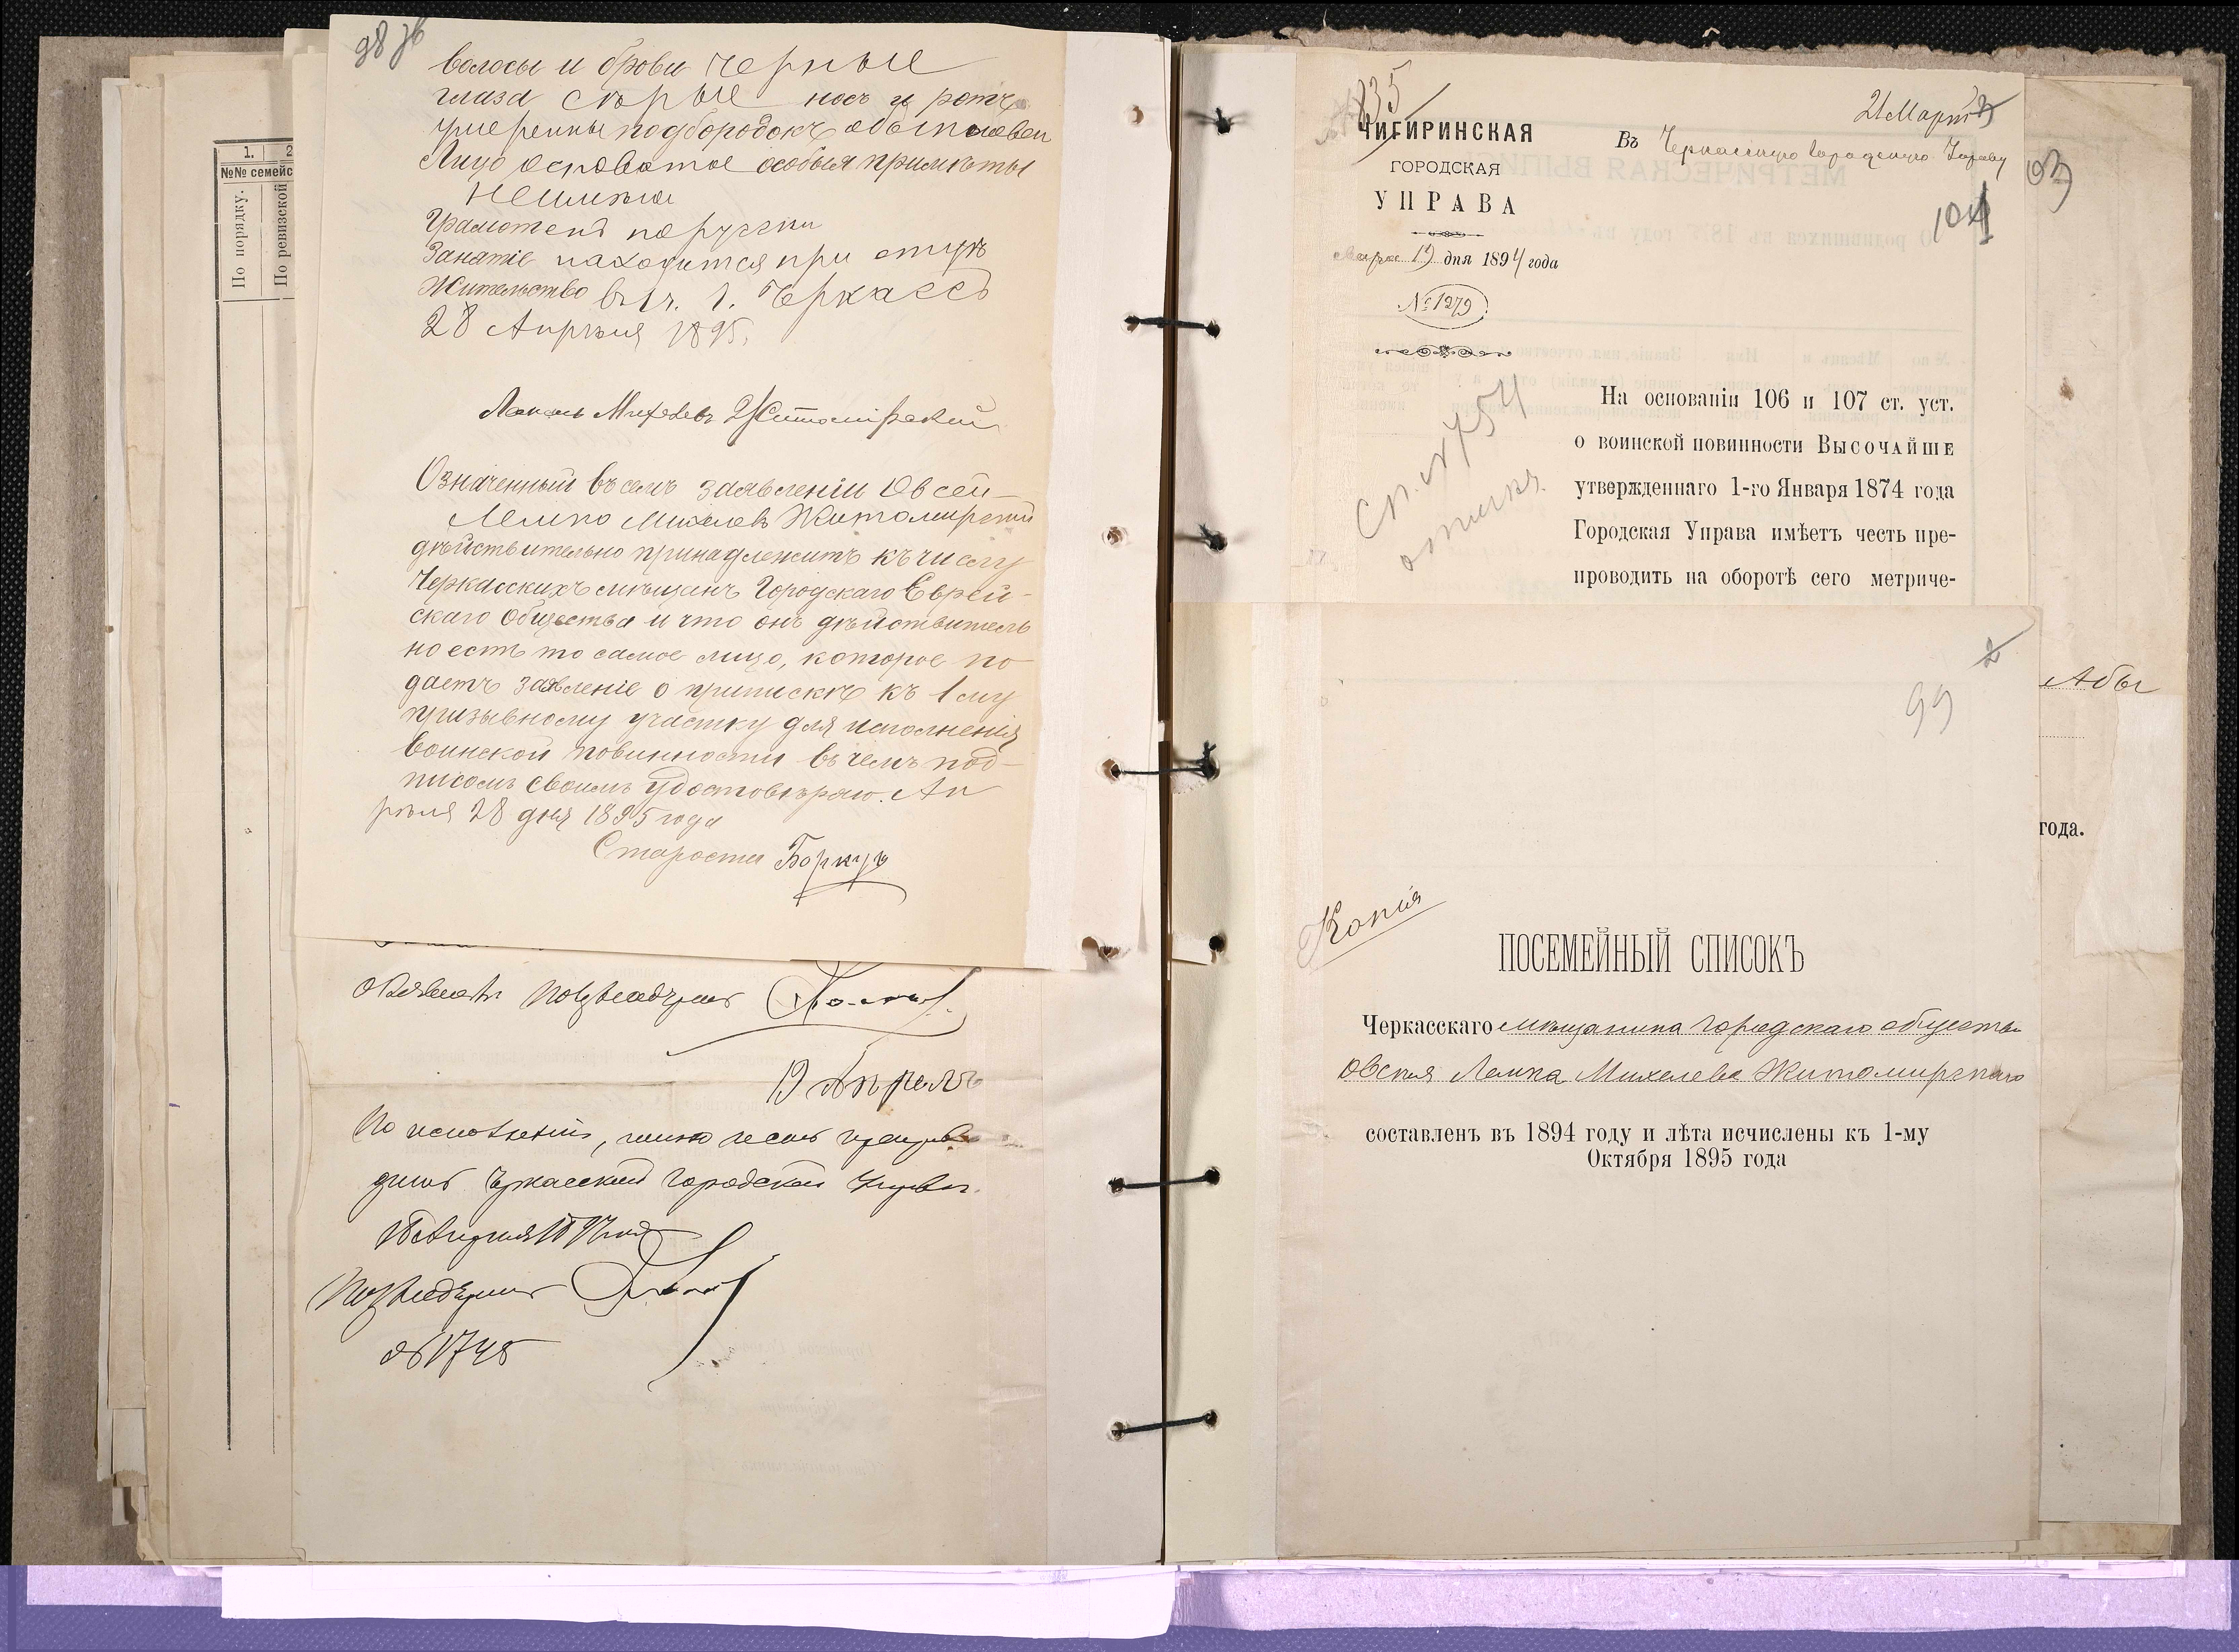 98 зв
волосы и брови черные
глаза серые носъ и ротъ
умеренны подбородокъ обыкновен
Лицо осповатое особыя примѣты
неимѣю
Грамотенъ порусски
Занятіе находится при отцѣ
Жительство въ г. Черкассѣ
28 Апрѣля 1895.
Михелевъ Житомірскій
Означенный въ семъ заявленіи Овсей-
Лемпа Михелевъ Житомирскій
дѣйствительно принадлежитъ къ числу
Черкасскихъ мѣщанъ Городскаго Еврей-
скаго Общества и что онъ дѣйствитель
но есть то самое лицо, которое по
даетъ заявленіе о припискѣ къ 1 му
призывному участку для исполненія
воинской повинности въ чемъ под-
писомъ своимъ удостовѣряю. Ап
рѣля 28 дня 1895 года
Староста Боркузъ
1. 2
№№ семейс
По порядку.
По ревизской
19 Апрель
По исполненіи,
Городской Управы
№ 1748
835
21 Март
ЧИГИРИНСКАЯ
ГОРОДСКАЯ
УПРАВА
Въ Черкасскую Городскую Управу
103
104
Марта 19 дня 1894 года
№ 1279
На основаніи 106 и 107 ст. уст.
о воинской повинности ВЫСОЧАЙШЕ
утвержденнаго 1-го Января 1874 года
Городская Управа имѣетъ честь пре-
проводить на оборотѣ сего метриче-
Сп. № 754
2
99
Абы
года.
Копія
ПОСЕМЕЙНЫЙ СПИСОКЪ
Черкасскаго мѣщанина городскаго общества
Овсея Лемпа Михелева Житомирскаго
составленъ въ 1894 году и лѣта исчислены къ 1-му
Октября 1895 года